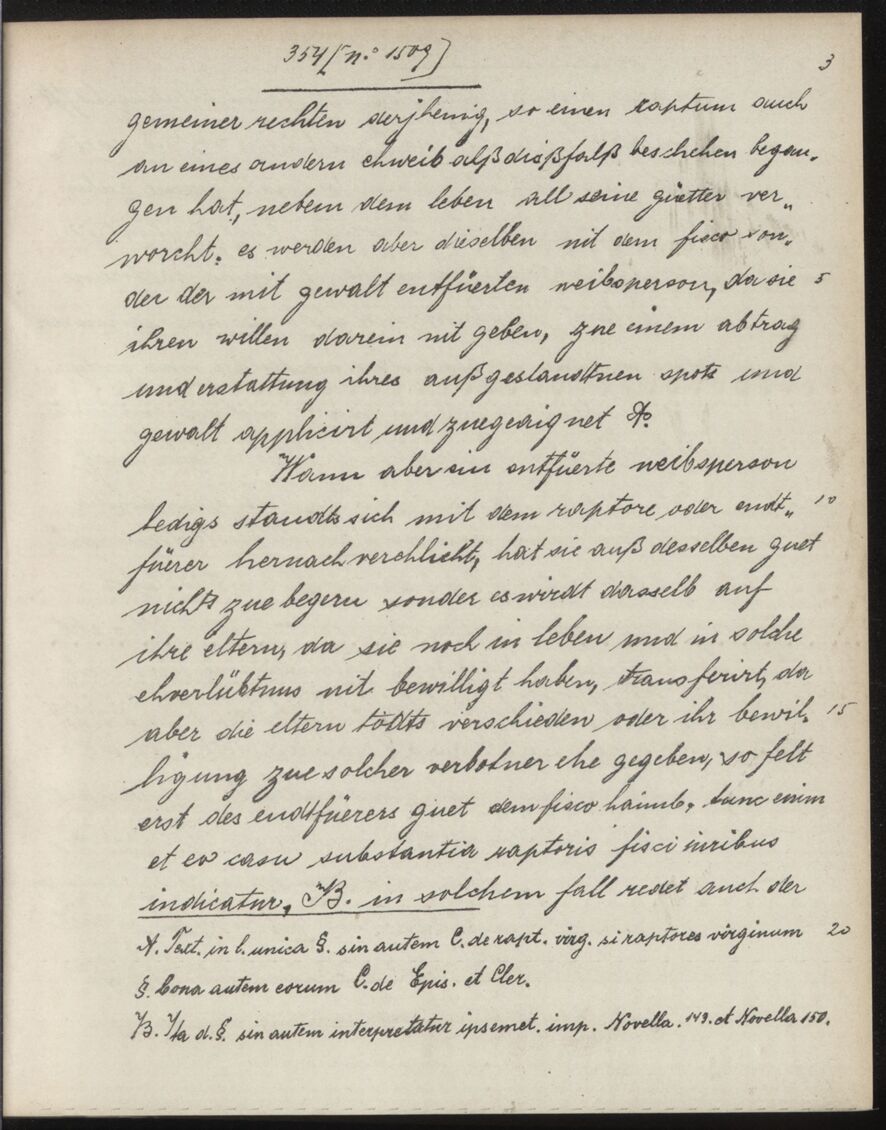 354 [n.° 1509] 3
gemeiner rechten derjhenig, so einen raptum auch
an eines andern eheweib alß disßfalß beschehen began„
gen hat, nebem dem leben all seine güetter ver„
worcht. es werden aber dieselben nit dem fisco son„
der der mit gewalt entfüerten weibsperson, da sie 5
ihren willen darein nit geben, zue einem abtrag
und erstattung ihres außgestandtnen spots und
gewalt applicirt und zuegeaignet A.
Wann aber ein entfüerte weibsperson
ledigs standts sich mit dem raptore oder endt„ 10
füerer hernach verehlicht, hat sie auß desselben guet
nichts zue begeren sonder es wirdt dasselb auf
ihre eltern, da sie noch in leben und in solche
ehverlübtnus nit bewilligt haben, transferirt, da
aber die eltern todts verschieden oder ihr bewil„ 15
ligung zue solcher verbotner ehe gegeben, so felt
erst des endtfüerers guet dem fisco haimb, tunc enim
et eo casu substantia raptoris fisci iuribus
indicatur, B. in solchem fall redet auch der
A. Text. in l. unica §. sin autem C. de rapt. virg. si raptores virginum 20
§. bona autem eorum C. de Epis. et Cler.
B. Ita d. §. sin autem interpretatur ipsemet. imp. Novella. 143. et Novella 150.